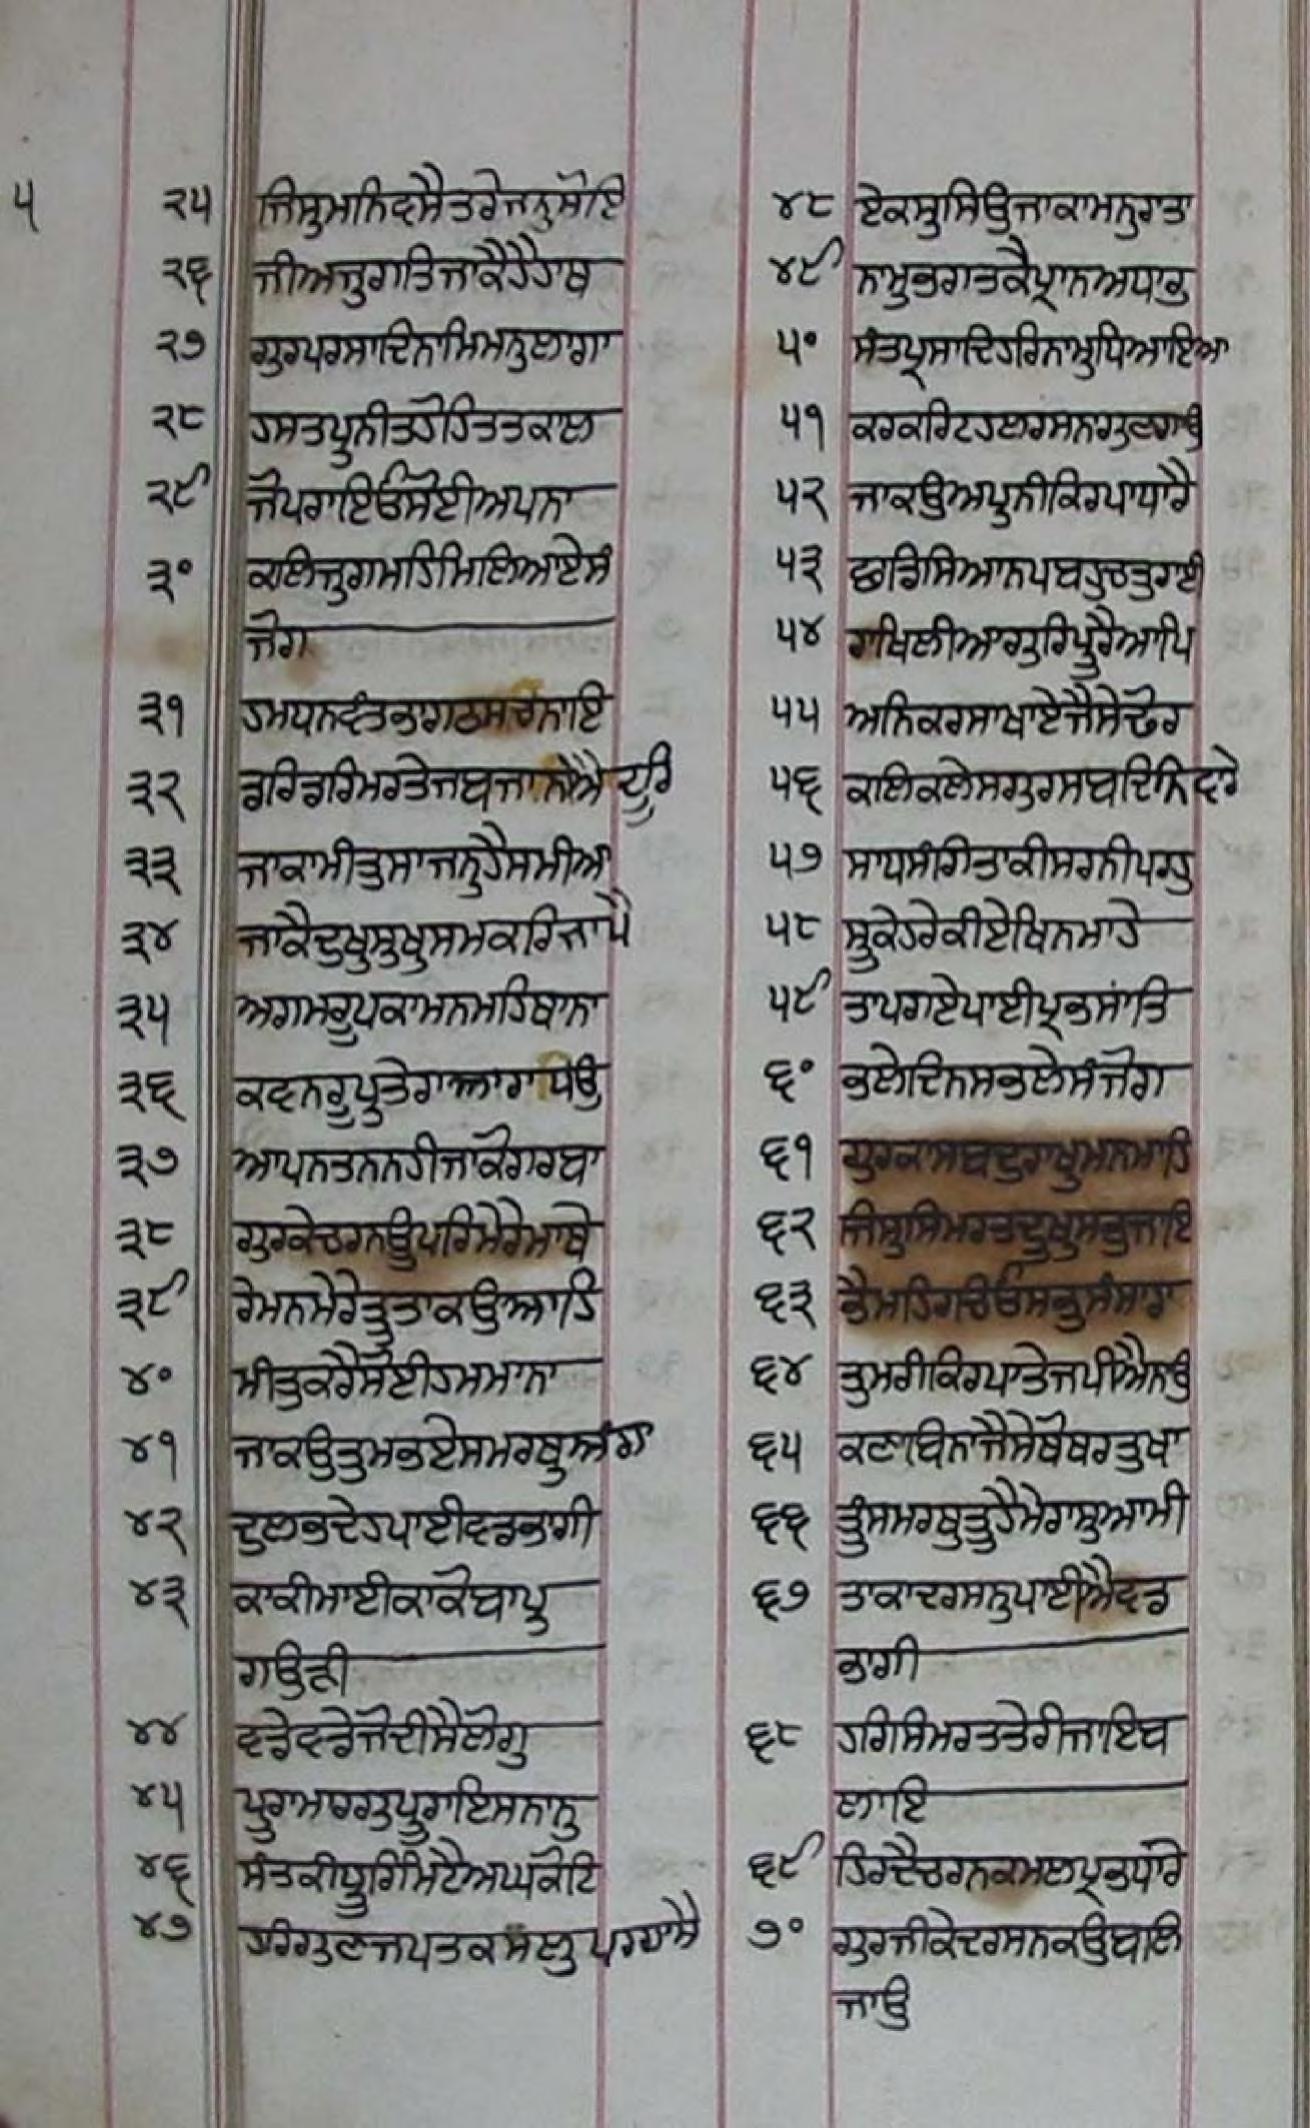 ੫
੨੫ ਜਿਸੁਮਨਿਵਸੈਤਰੇਜਨੁਸੋਇ
੨੬ ਜੀਅਜੁਗਤਿਜਾਕੈਹੈਹਾਥ
੨੭ ਗੁਰਪਰਸਾਦਿਨਾਮਿਮਨੁਲਾਗਾ
੨੮ ਹਸਤਪੁਨੀਤਹੋਹਿਤਤਕਾਲ
੨੯ ਜੋਪਰਾਇਓਸੋਈਅਪਨਾ
੩੦ ਕਲਿਜੁਗਮਹਿਮਿਲਿਆਏਸੰ
ਜੋਗ
੩੧ ਹਮਧਨਵੰਤਭਾਗਠਸਚਨਾਇ
੩੨ ਡਰਿਡਰਿਮਰਤੇਜਬਜਾਨੀਐਦੂਰਿ
੩੩ ਜਾਕਾਮੀਤੁਸਾਜਨੁਹੈਸਮੀਆ
੩੪ ਜਾਕੈਦੁਖੁਸੁਖੁਸਮਕਰਿਜਾਪੈ
੩੫ ਅਗਮਰੂਪਕਾਮਨਮਹਿਥਾਨਾ
੩੬ ਕਵਨਰੂਪੁਤੇਰਾਆਰਾਧਉ
੩੭ ਆਪਨਤਨਨਹੀਜਾਕੋਗਰਬਾ
੩੮ ਗੁਰਕੇਚਰਨਊਪਰਿਮੇਰੇਮਾਥੇ
੩੯ ਰੇਮਨਮੇਰੇਤੂਤਾਕਉਆਹਿ
੪੦ ਮੀਤੁਕਰੈਸੋਈਹਮਮਾਨਾ
੪੧ ਜਾਕਉਤੁਮਭਏਸਮਰਥੁਅੰਗਾ
੪੨ ਦੁਲਭਦੇਹਪਾਈਵਡਭਾਗੀ
੪੩ ਕਾਕੀਮਾਈਕਾਕੋਬਾਪੁ
ਗਉੜੀ
੪੪ ਵਡੇਵਡੇਜੋਦੀਸੈਲੋਗੁ
੪੫ ਪੂਰਾਮਾਰਗੁਪੂਰਾਇਸਨਾਨੁ
੪੬ ਸੰਤਕੀਧੂਰਿਮਿਟੇਅਘਕੋਟਿ
੪੭ ਹਰਿਗੁਣਜਪਤਕਮਲੁਪਰਗਾਸੈ
੪੮ ਏਕਸੁਸਿਉਜਾਕਾਮਨੁਰਾਤਾ
੪੯ ਨਾਮੁਭਗਤਕੈਪ੍ਰਾਨਅਧਾਰੁ
੫੦ ਸੰਤਪ੍ਰਸਾਦਿਹਰਿਨਾਮੁਧਿਆਇਆ
੫੧ ਕਰਕਰਿਟਹਲਰਸਨਗੁਣਗਾਉ
੫੨ ਜਾਕਉਅਪੁਨੀਕਿਰਪਾਧਾਰੈ
੫੩ ਛਾਡਿਸਿਆਨਪਬਹੁਚਤੁਰਾਈ
੫੪ ਰਾਖਿਲੀਆਗੁਰਿਪੂਰੈਆਪਿ
੫੫ ਅਨਿਕਰਸਾਖਾਏਜੈਸੇਢੋਰ
੫੬ ਕਲਿਕਲੇਸਗੁਰਸਬਦਿਨਿਵਾਰੇ
੫੭ ਸਾਧਸੰਗਿਤਾਕੀਸਰਨੀਪਰਹੁ
੫੮ ਸੂਕੇਹਰੇਕੀਏਖਿਨਮਾਹੇ
੫੯ ਤਾਪਗਏਪਾਈਪ੍ਰਭਸਾਂਤਿ
੬੦ ਭਲੇਦਿਨਸਭਲੇਸੰਜੋਗ
੬੧ ਗੁਰਕਾਸਬਦੁਰਾਖੁਮਨਮਾਹਿ
੬੨ ਜਿਸੁਸਿਮਰਤਦੂਖੁਸਭੁਜਾਇ
੬੩ ਭੈਮਹਿਰਚਿਓਸਭੁਸੰਸਾਰਾ
੬੪ ਤੁਮਰੀਕਿਰਪਾਤੇਜਪੀਐਨਾਉ
੬੫ ਕਣਬਿਨਾਜੈਸੇਥੋਥਰਤੁਖਾ
੬੬ ਤੂੰਸਮਰਥੁਤੂਹੈਮੇਰਾਸੁਆਮੀ
੬੭ ਤਾਕਾਦਰਸਨੁਪਾਈਐਵਡ
ਭਾਗੀ
੬੮ ਹਰਿਸਿਮਰਤਤੇਰੀਜਾਇਬ
ਲਾਇ
੬੯ ਹਿਰਦੈਚਰਨਕਮਲਪ੍ਰਭਧਾਰੇ
੭੦ ਗੁਰਜੀਕੇਦਰਸਨਕਉਬਲਿ
ਜਾਉ